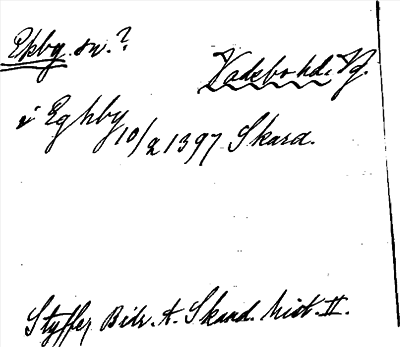 Ekby sn.?
Vadsbo hd. Vg.
i Eghby 10/2 1397 Skara.
Styffe, Bidr. t. Skand. hist. II.